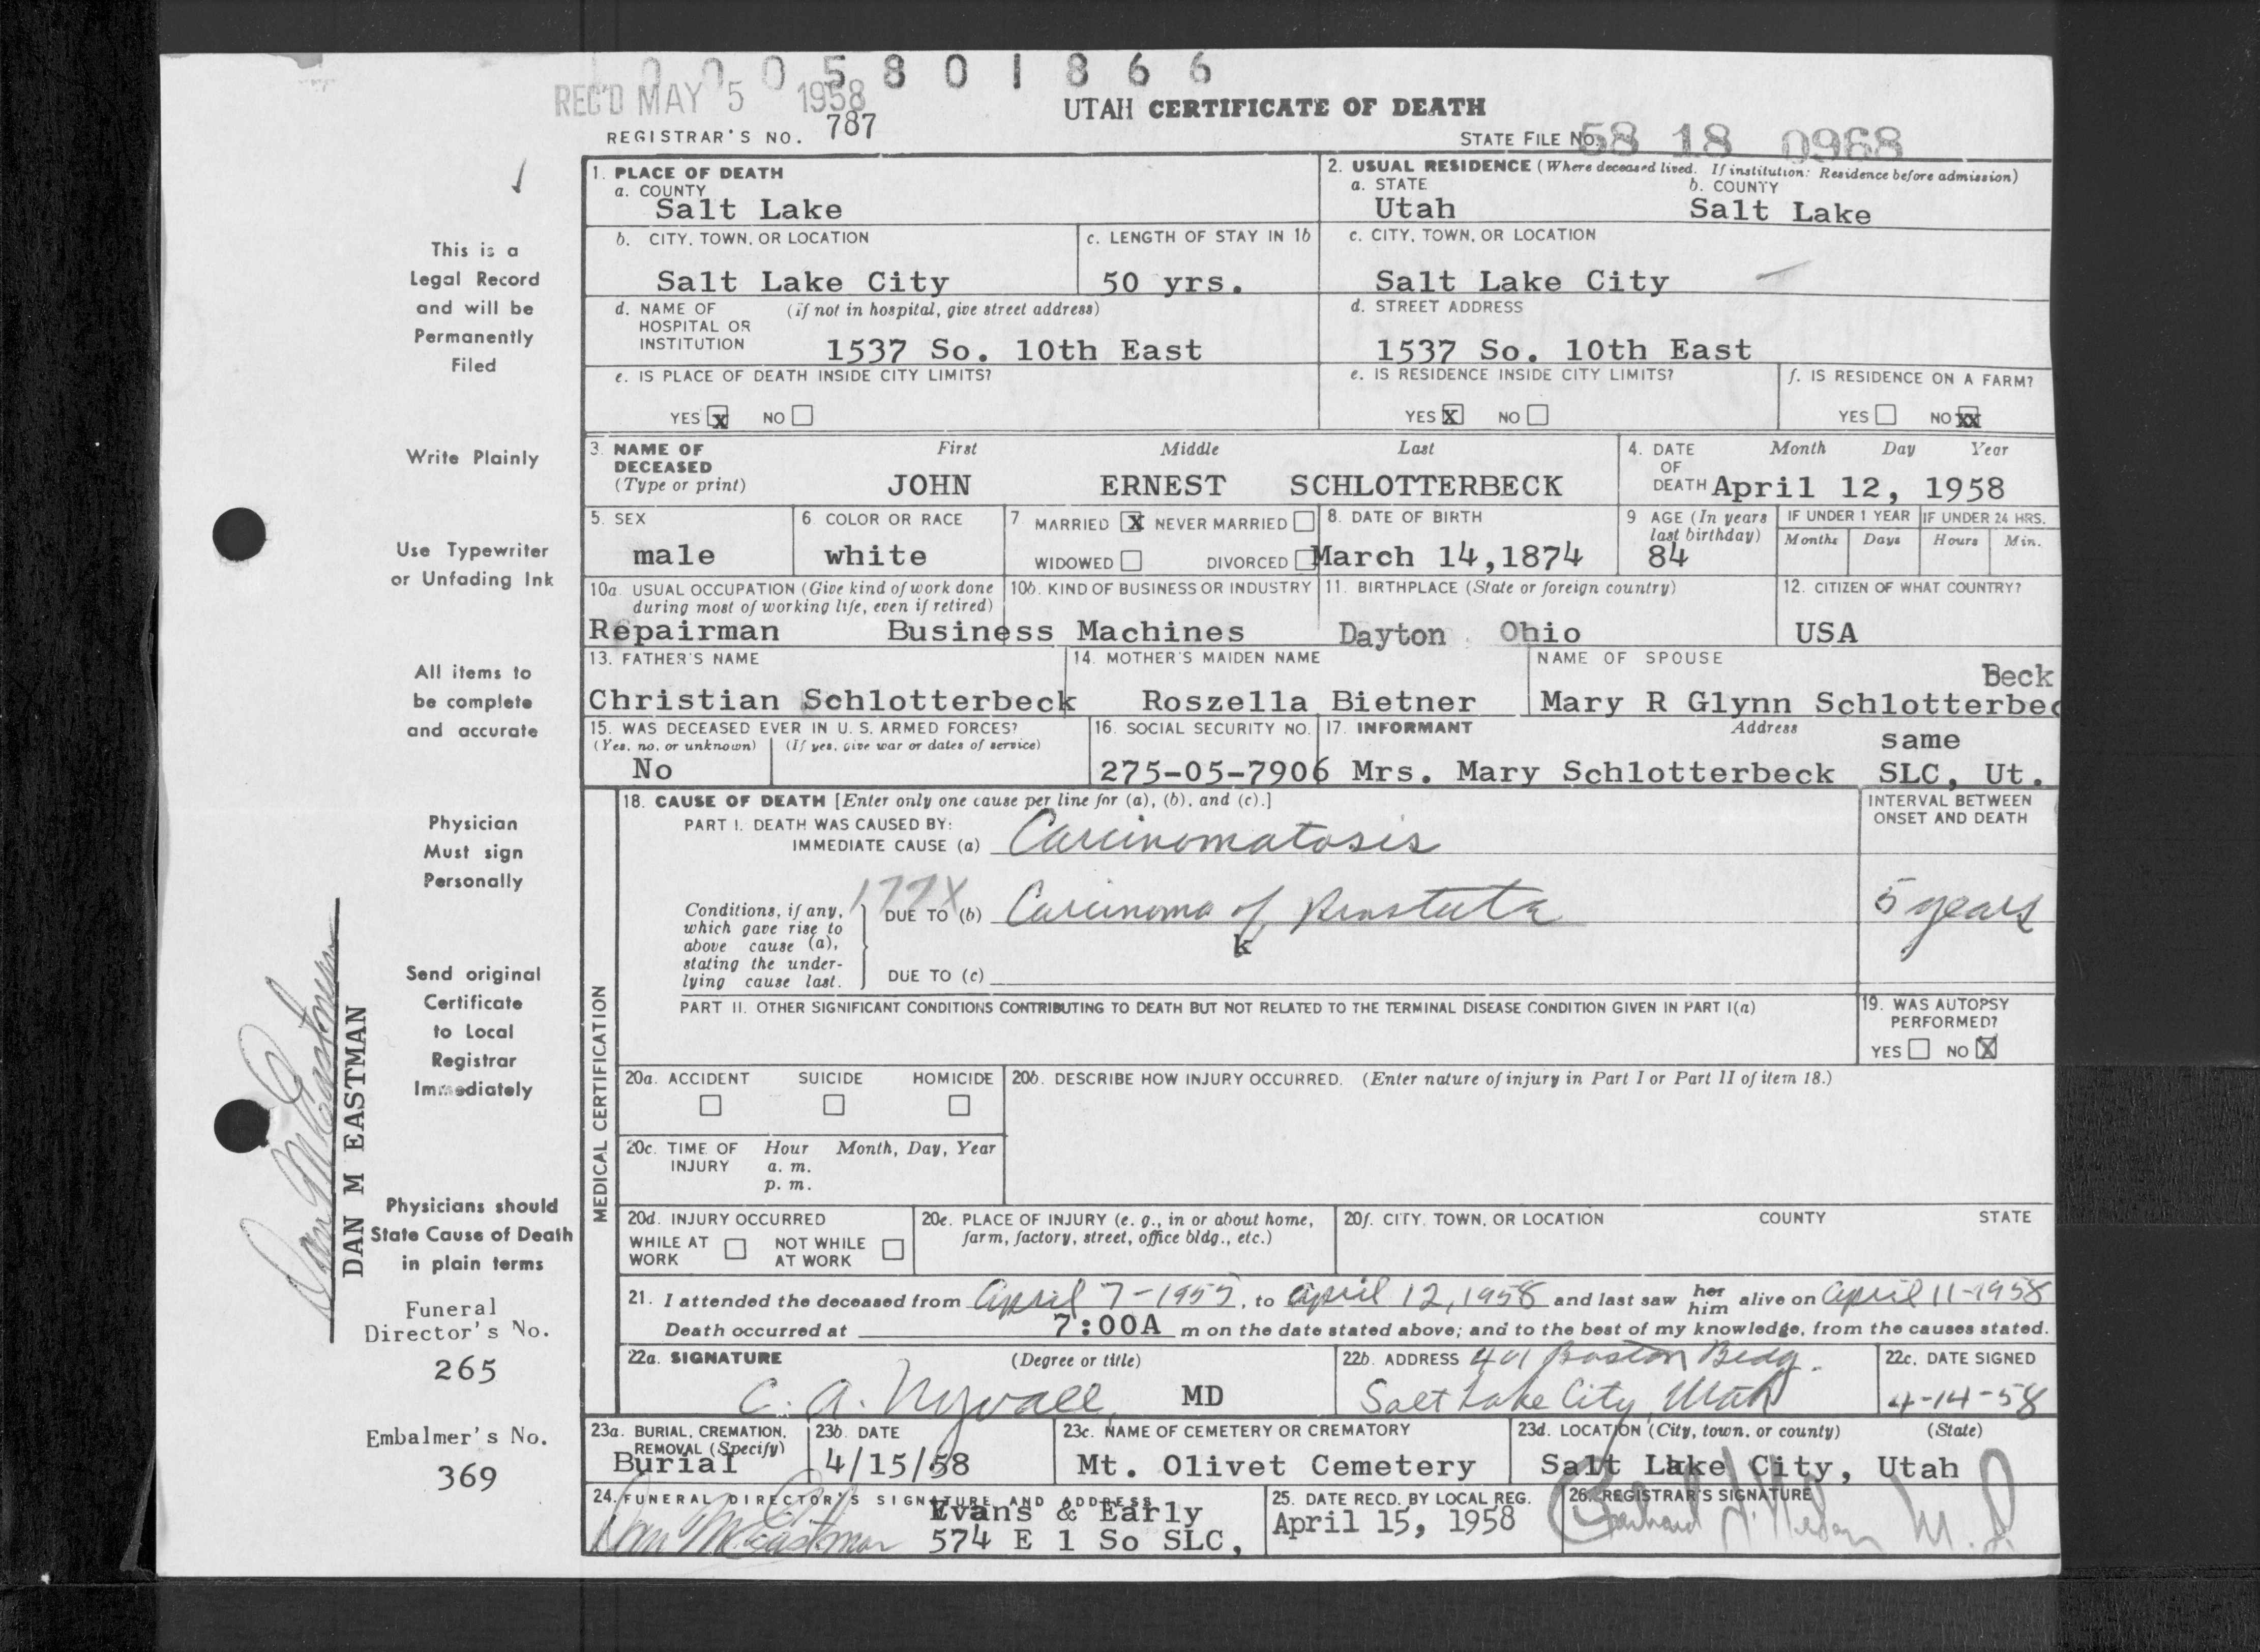 0 0 0 5 8 0 1 8 6 6
REC'D MAY 5 1958
UTAH CERTIFICATE OF DEATH
REGISTRAR'S NO. 787
STATE FILE No. 58 18 0968
1. PLACE OF DEATH
a. COUNTY
Salt Lake
2. USUAL RESIDENCE (Where deceased lived. If institution: Residence before admission)
a. STATE b. COUNTY
Utah Salt Lake
b. CITY, TOWN, OR LOCATION c. LENGTH OF STAY IN 1b
Salt Lake City 50 yrs.
c. CITY, TOWN, OR LOCATION
Salt Lake City
d. NAME OF (if not in hospital, give street address)
HOSPITAL OR
INSTITUTION 1537 So. 10th East
d. STREET ADDRESS
1537 So. 10th East
e. IS PLACE OF DEATH INSIDE CITY LIMITS?
YES X NO
e. IS RESIDENCE INSIDE CITY LIMITS?
YES X NO
f. IS RESIDENCE ON A FARM?
YES NO XX
3. NAME OF DECEASED (Type or print)
First Middle Last
JOHN ERNEST SCHLOTTERBECK
4. DATE OF DEATH Month Day Year
April 12, 1958
5. SEX
male
6. COLOR OR RACE
white
7. MARRIED X NEVER MARRIED
WIDOWED DIVORCED
8. DATE OF BIRTH
March 14,1874
9 AGE (In years last birthday)
84
IF UNDER 1 YEAR IF UNDER 24 HRS.
Months Days Hours Min.
10a. USUAL OCCUPATION (Give kind of work done
during most of working life, even if retired)
Repairman
10b. KIND OF BUSINESS OR INDUSTRY
Business Machines
11. BIRTHPLACE (State or foreign country)
Dayton Ohio
12. CITIZEN OF WHAT COUNTRY?
USA
13. FATHER'S NAME
Christian Schlotterbeck
14. MOTHER'S MAIDEN NAME
Roszella Bietner
NAME OF SPOUSE
Beck
Mary R Glynn Schlotterbec
15. WAS DECEASED EVER IN U. S. ARMED FORCES?
(Yes, no, or unknown) (If yes, give war or dates of service)
No
16. SOCIAL SECURITY NO.
275-05-7906
17. INFORMANT Address
same
Mrs. Mary Schlotterbeck SLC, Ut.
MEDICAL CERTIFICATION
18. CAUSE OF DEATH [Enter only one cause per line for (a), (b), and (c).]
PART I. DEATH WAS CAUSED BY:
IMMEDIATE CAUSE (a) Carcinomatosis
INTERVAL BETWEEN
ONSET AND DEATH
177X
Conditions, if any,
which gave rise to
above cause (a),
stating the under-
lying cause last.
DUE TO (b) Carcinoma of Prostate
5 years
k
DUE TO (c)
PART II. OTHER SIGNIFICANT CONDITIONS CONTRIBUTING TO DEATH BUT NOT RELATED TO THE TERMINAL DISEASE CONDITION GIVEN IN PART I(a)
19. WAS AUTOPSY
PERFORMED?
YES NO X
20a. ACCIDENT SUICIDE HOMICIDE
20b. DESCRIBE HOW INJURY OCCURRED. (Enter nature of injury in Part I or Part II of item 18.)
20c. TIME OF INJURY Hour Month, Day, Year
a. m.
p. m.
20d. INJURY OCCURRED
WHILE AT WORK NOT WHILE AT WORK
20e. PLACE OF INJURY (e. g., in or about home,
farm, factory, street, office bldg., etc.)
20f. CITY, TOWN, OR LOCATION COUNTY STATE
21. I attended the deceased from April 7-1955, to April 12, 1958 and last saw her him alive on April 11-1958
Death occurred at 7:00A m on the date stated above; and to the best of my knowledge, from the causes stated.
22a. SIGNATURE (Degree or title)
C. A. Nyvall MD
22b. ADDRESS 401 Boston Bldg.
Salt Lake City, Utah
22c. DATE SIGNED
4-14-58
23a. BURIAL, CREMATION,
REMOVAL (Specify)
Burial
23b. DATE
4/15/58
23c. NAME OF CEMETERY OR CREMATORY
Mt. Olivet Cemetery
23d. LOCATION (City, town, or county) (State)
Salt Lake City, Utah
24. FUNERAL DIRECTOR'S SIGNATURE AND ADDRESS
Dan M Eastman
Evans & Early
574 E 1 So SLC,
25. DATE RECD. BY LOCAL REG.
April 15, 1958
26. REGISTRAR'S SIGNATURE
M.D.
This is a
Legal Record
and will be
Permanently
Filed
Write Plainly
Use Typewriter
or Unfading Ink
All items to
be complete
and accurate
Physician
Must sign
Personally
Send original
Certificate
to Local
Registrar
Immediately
Physicians should
State Cause of Death
in plain terms
Funeral
Director's No.
265
Embalmer's No.
369
Dan M Eastman
DAN M EASTMAN